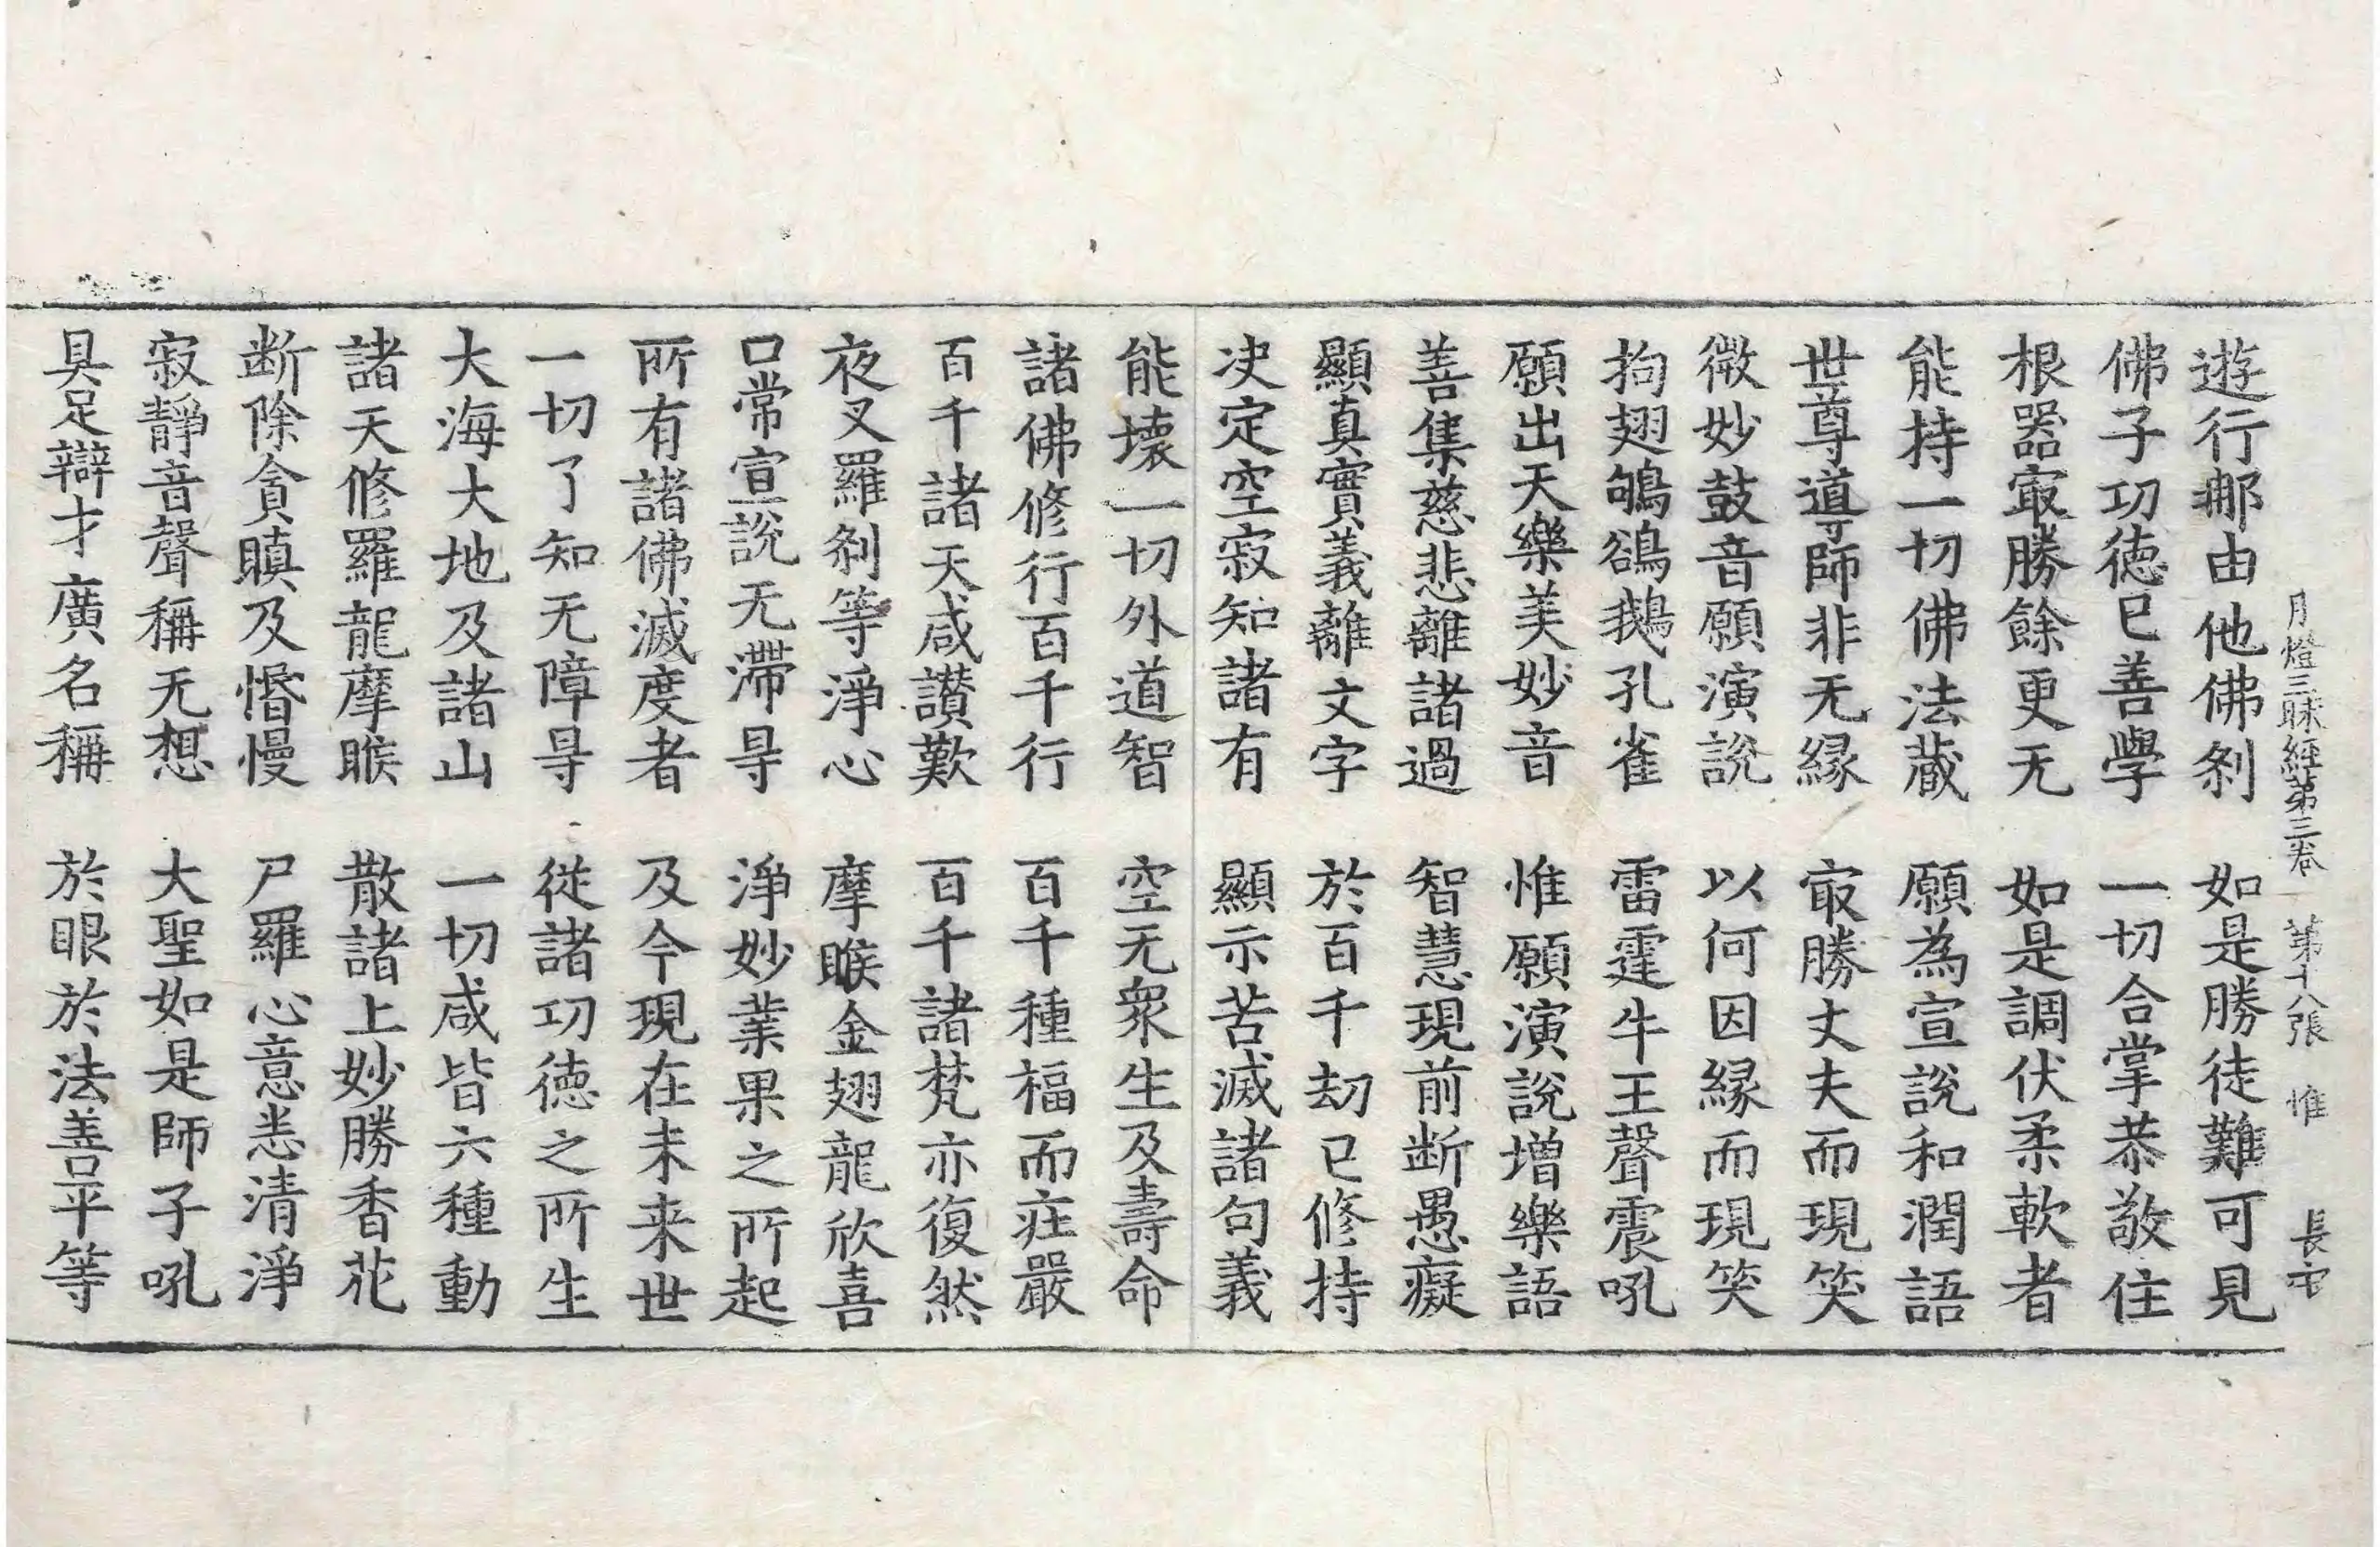 月燈三昧經第三卷　第十八張　惟　長宀
遊行那由他佛刹　如是勝徒難可見
佛子功德已善學　一切合掌恭敬住
根器㝡勝餘更无　如是調伏柔軟者
能持一切佛法藏　願為宣說和潤語
世尊道師非无緣　㝡勝丈夫而現笑
微妙鼓音願演說　以何因緣而現笑
拘翅鴝鵒鵝孔雀　雷霆牛王聲震吼
願出天樂美妙音　惟願演說增樂語
善集慈悲離諸過　智慧現前断愚癡
顯真實義離文字　於百千劫已修持
决定空寂知諸有　顯示苦滅諸句義
能壞一切外道智　空无衆生及壽命
諸佛修行百千行　百千種福而莊嚴
百千諸天咸讚歎　百千諸梵亦復然
夜叉羅刹等淨心　摩睺金翅龍欣喜
口常宣說无滯㝵　淨妙業果之所起
所有諸佛滅度者　及今現在未来世
一切了知无障㝵　從諸功德之所生
大海大地及諸山　一切咸皆六種動
諸天修羅龍摩睺　散諸上妙勝香花
断除貪瞋及惛慢　尸羅心意悉清淨
寂靜音聲稱无想　大聖如是師子吼
具足辯才廣名稱　於眼於法善平等